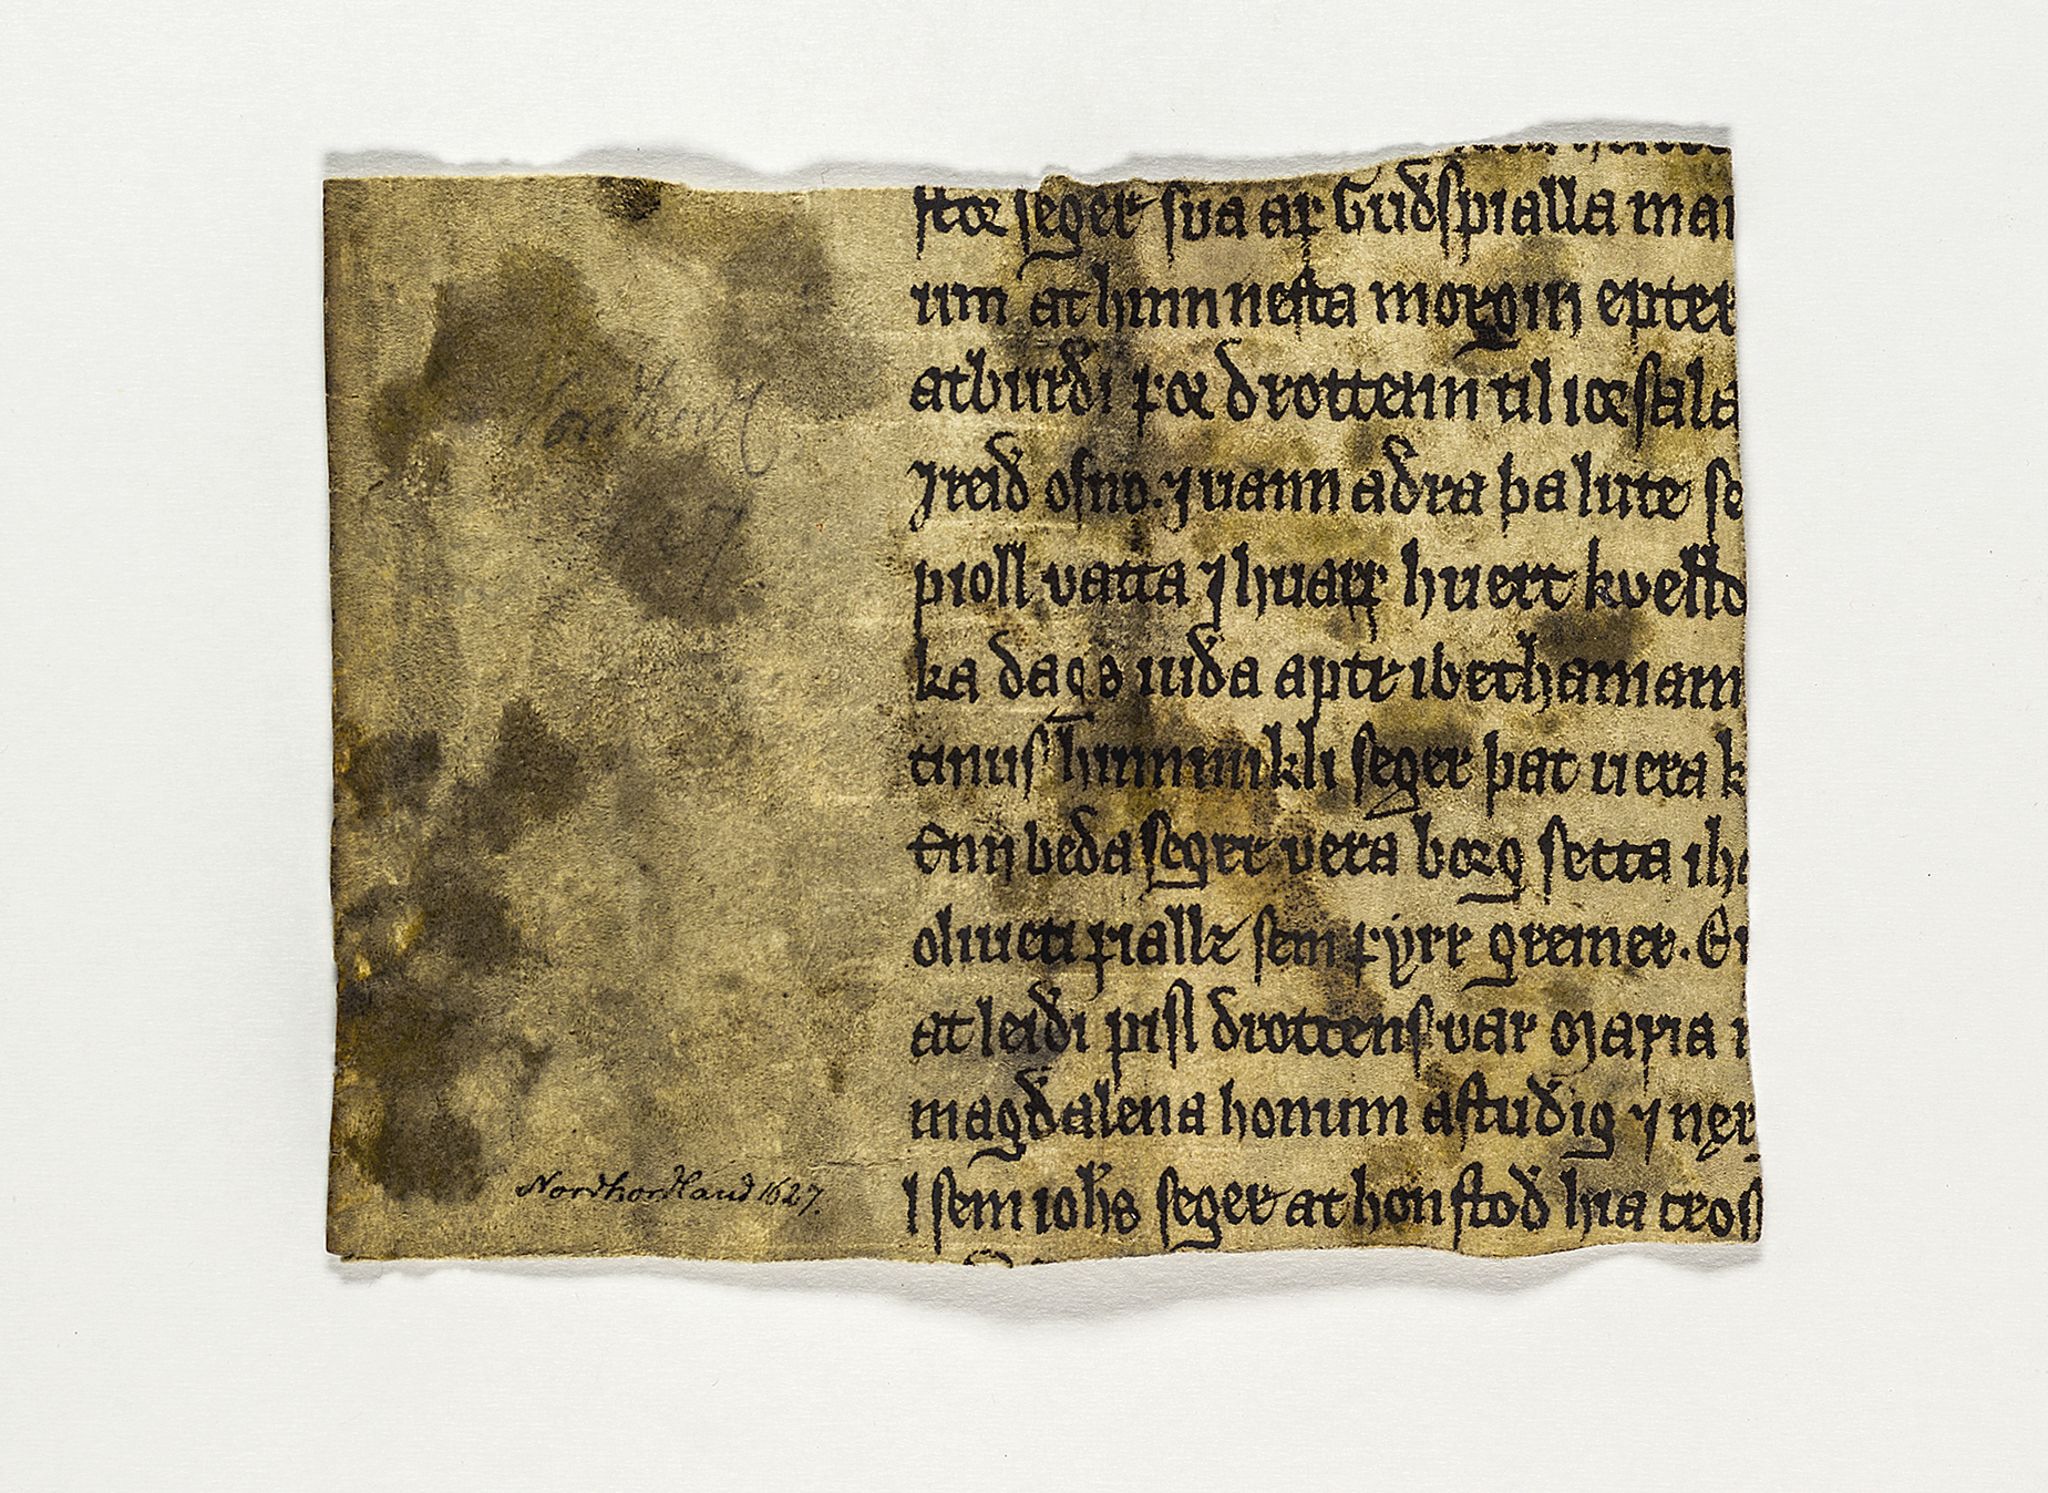 ſtꝍr ſeger sva aꝼ Guðſpialla mar
um at hinn neſta morgin epter
atburði ꝼor drottenn til iorſala
⁊ reið oſno. ⁊ vann aðra þa lute se
pioll vatta ⁊ huarꝼ huert kvelld
ka dags iuða aptr i bethaniam
tinuſ hinn mikli ſeger þat vera k
Enn beda ſeger vera borg ſetta i h
oliueti ꝼialle ſem ꝼyrr greiner. E
at leiði piſl drottenſ var Maria
magðalena honum aſtuðig ⁊ nęr
l ſem iohs ſeger at hon ſtoð hia cros
Nordhor
Nordhordland 1627.